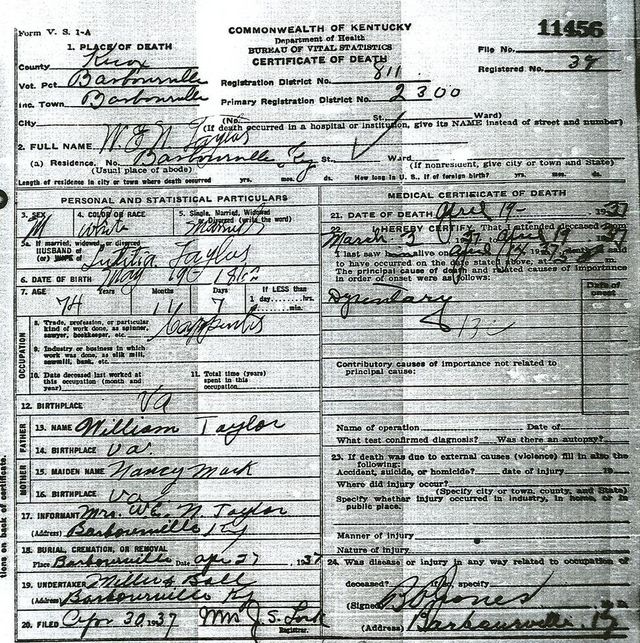 Form V. S. 1-A
COMMONWEALTH OF KENTUCKY
Department of Health
BUREAU OF VITAL STATISTICS
CERTIFICATE OF DEATH
11456
File No.
Registered No. 39
1. PLACE OF DEATH
County Knox
Vot. Pct. Barbourville
Inc. Town Barbourville
Registration District No. 811
Primary Registration District No. 2300
City (No. St. Ward)
(If death occurred in a hospital or institution, give its NAME instead of street and number)
2. FULL NAME W. E. N. Taylor
(a) Residence. No. Barbourville Ky St. Ward
(Usual place of abode) (If nonresident, give city or town and State)
Length of residence in city or town where death occurred yrs. mos. ds. How long in U. S., if of foreign birth? yrs. mos. ds.
PERSONAL AND STATISTICAL PARTICULARS
3. SEX M
4. COLOR OR RACE White
5. Single, Married, Widowed or Divorced (write the word) Married
5a. If married, widowed or divorced
HUSBAND of
(or) WIFE of Lutitia Taylor
6. DATE OF BIRTH May
7. AGE Years Months Days If LESS than
74 11 7 1 day, hrs.
or min.
OCCUPATION
8. Trade, profession, or particular
kind of work done, as spinner,
sawyer, bookkeeper, etc. Carpenter
9. Industry or business in which
work was done, as silk mill,
sawmill, bank, etc.
10. Date deceased last worked at
this occupation (month and
year)
11. Total time (years)
spent in this
occupation
12. BIRTHPLACE Va
FATHER
13. NAME William Taylor
14. BIRTHPLACE Va.
MOTHER
15. MAIDEN NAME Nancy Mark
16. BIRTHPLACE Va
17. INFORMANT Mrs. W. E. N. Taylor
(Address) Barbourville Ky
18. BURIAL, CREMATION, OR REMOVAL
Place Barbourville Date Apr 27 1937
19. UNDERTAKER Miller & Ball
(Address) Barbourville Ky
20. FILED Apr 30 1937 Mrs J. S.
Registrar.
MEDICAL CERTIFICATE OF DEATH
21. DATE OF DEATH April 19 1937
22. I HEREBY CERTIFY, That I attended deceased from
March 3 37
I last saw alive on April
to have occurred on the date stated above, at
The principal cause of death and related causes of importance
in order of onset were as follows:
Date of onset
Dysentary
Contributory causes of importance not related to
principal cause:
Name of operation Date of
What test confirmed diagnosis? Was there an autopsy?
23. If death was due to external causes (violence) fill in also the
following:
Accident, suicide, or homicide? date of injury 19
Where did injury occur?
(Specify city or town, county, and State)
Specify whether injury occurred in industry, in home, or in
public place.
Manner of injury
Nature of injury
24. Was disease or injury in any way related to occupation of
deceased? If so, specify
(Signed) Jones
(Address) Barbourville, Ky
tions on back of certificate.